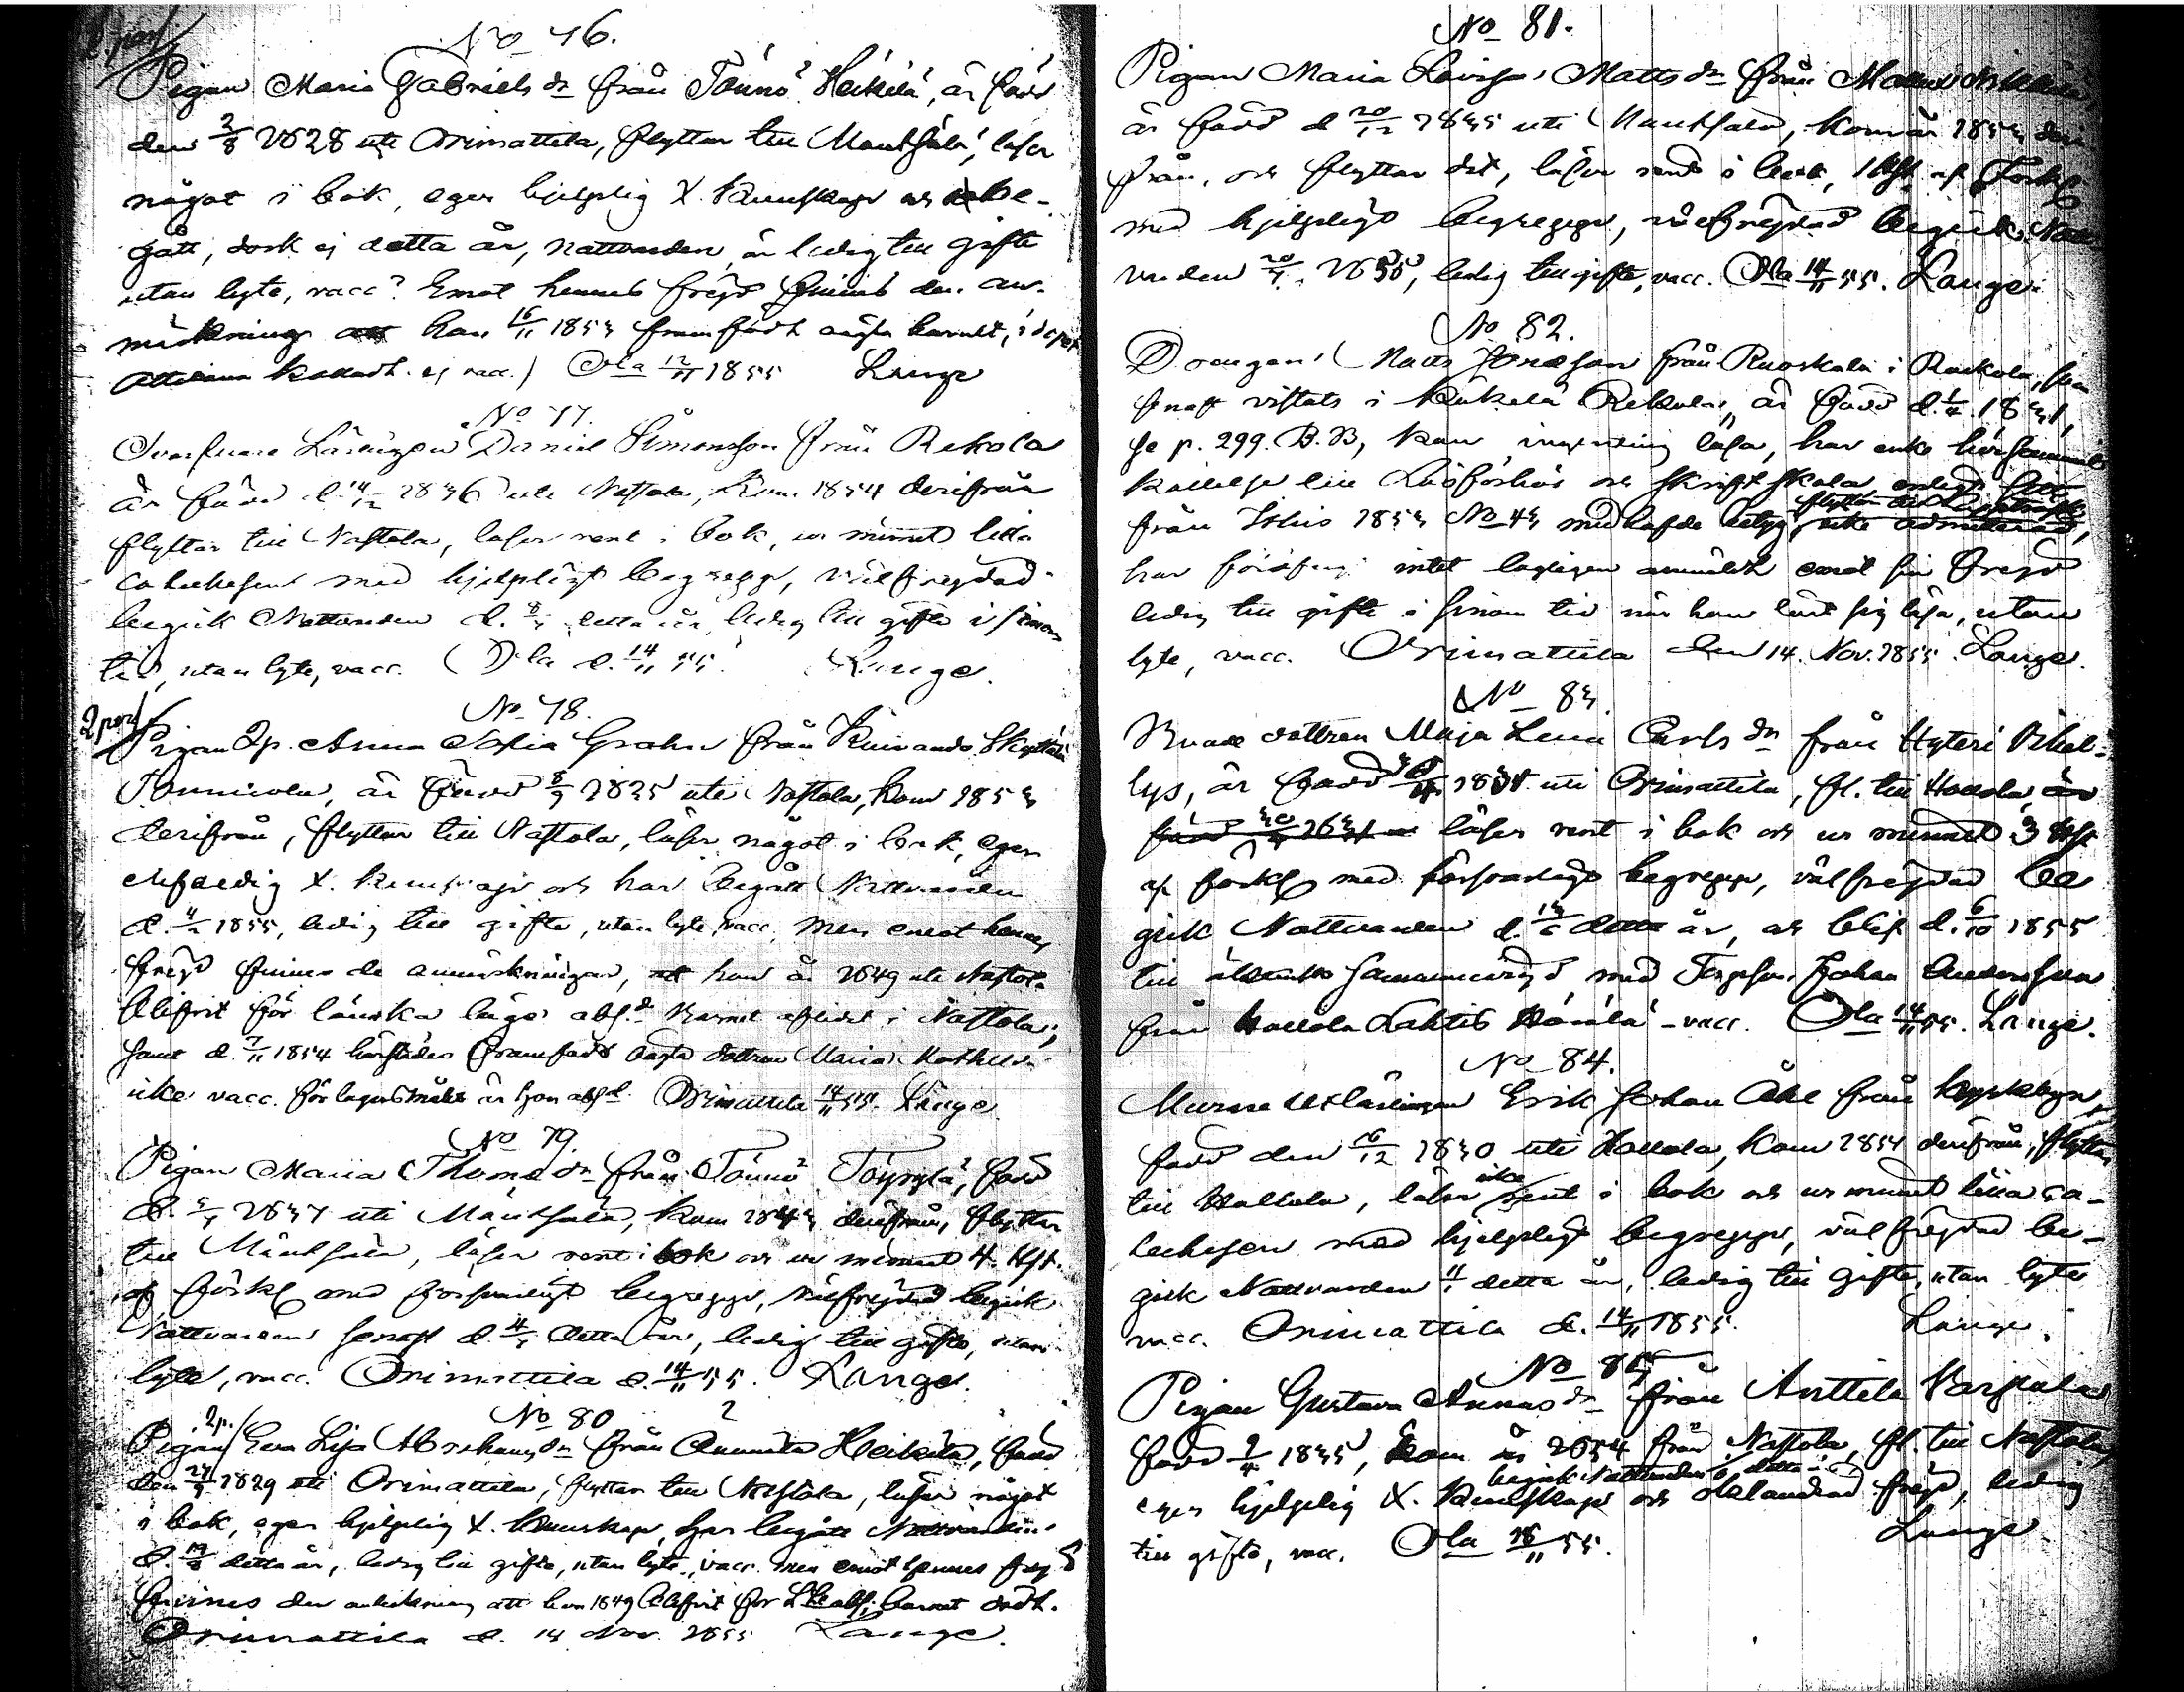 No 76.
Pigan Maria Gabriels dr från Tönnö Heikilä, är född
den 2/8 1828 uti Orimattila, flyttar till Mäntsälä, läser
något i bok, eger hjelplig X. kunskap och be-
gått, dock ej detta år, nattvarden, är ledig till gifte
utan lyte, vacc? Emot hennes frejd finnes den an-
märkning att hon 16/11 1853 framfödt oägta barnet,
kalladt. ej vacc.) Ola 12/11 1855 Lange
No 77.
Lärlingen Daniel Simonsson från Rekola
är född d. 14/12 1836 uti Nastola, kom 1854 derifrån
flyttar till Nastola, läser rent i bok, ur minnet lilla
catechesen med hjelpligt begrepp, välfrejdad
begick Nattvarden d. detta år, ledig till gifte i sinom
tid, utan lyte, vacc. Ola d. 14/11 55. Lange.
No 78.
2 per/
Pigan 2p. Anna Sofia Grahn från Kuivando Skyttilä
är född 8/9 1825 uti Nastola, kom 1853
derifrån, flyttar till Nastola, läser något i bok, eger
X. kunskap och har begått Nattvarden
d. 1855, ledig till gifte, utan lyte, vacc. men emot hennes
frejd finnes de anmärkningar, att hon år 1849 uti Nastola
blifvit för lönska läge abs.d Barnet aflidit i Nastola;
samt d. 7/11 1854 härstädes framfödt oägta dottren Maria Mathilda
icke vacc. för lägersmålet är hon absd. Orimattila 14/11 55. Lange
No 79.
Pigan Maria Thomæ dr från Tönnö Töyrylä, född
d. 5/7 1837 uti Mäntsälä, kom 1843 derifrån, flyttar
till Mäntsälä, läser rent i bok och ur minnet 4. Hst.
af förkl. med försvarligt begrepp, välfrejdad begick
Nattvarden senast d. detta år, ledig till gifte, utan
lyte, vacc. Orimattila d. 14/11 55. Lange.
No 80
Pigan 2p./ Eva Lisa Abrahams dr från Heikilä, född
den 24/9 1829 uti Orimattila, flyttar till Nastola, läser något
i bok, eger hjelplig X. kunskap, har begått Nattvarden
d. detta år, ledig till gifte, utan lyte, vacc. men emot hennes frejd
finnes den anteckning att hon 1849 blifvit för abs; barnet dödt.
Orimattila d. 14 Nov. 1855 Lange.
No 81.
Pigan Maria Lovisa Matts dr från
är född d 20/12 1835 uti Mäntsälä, kom år 1853 der-
från, och flyttar dit, läser rent i bok, 1 Hst. af Förkl.
med hjelpligt begrepp, välfrejdad begick Natt-
varden 1855, ledig till gifte, vacc. Ola 14/11 55. Lange.
No 82.
Drengen Matts Jonasson från Ruoskala i som
senast vistats i Rekola, är född d. 1/4 1831,
se p. 299. B. B, kan ingenting läsa, har icke hörsammat
kallelse till Läsförhör och Skriftskola
från Ithis 1853 No 43 medhafde betyg, icke admitterad,
har föröfrigt intet lagligen anmäldt emot sin frejd
ledig till gifte i sinom tid när han lärt sig läsa, utan
lyte, vacc. Orimattila den 14. Nov. 1855. Lange.
No 83.
Bonde dottren Maja Lena Carls dr från Hyteri Pikal-
lys, är född uti Orimattila, fl. till Hollola,
läser rent i bok och ur minnet 3 Hst
af förkl med försvarligt begrepp, välfrejdad be
gick Nattvarden d. detta år, och blef d. 6/10 1855
till äktenskap sammanvigd med Torpson Johan Andersson
från Hollola Lahtis vacc. Ola 14/11 55. Lange.
No 84.
Murmästlärlingen Erik Johan Åke från kyrkbyn,
född den 16/12 1830 uti Hollola, kom 1854 derifrån, flyttar
till Hollola, läser icke rent i bok och ur minnet lilla ca-
techesen med hjelpligt begrepp, välfrejdad be-
gick Nattvarden detta år, ledig till gifte, utan lyte
vacc. Orimattila d. 14/11 1855. Lange.
No 85
Pigan Gustava Annas dr från Anttila Karpela
född 9/4 1835, kom år 1854 från Nastola, fl. till Nastola,
begick Nattvarden detta år
eger hjelplig X. kunskap och oklandrad frejd, ledig
till gifte, vacc. Ola 16/11 55. Lange